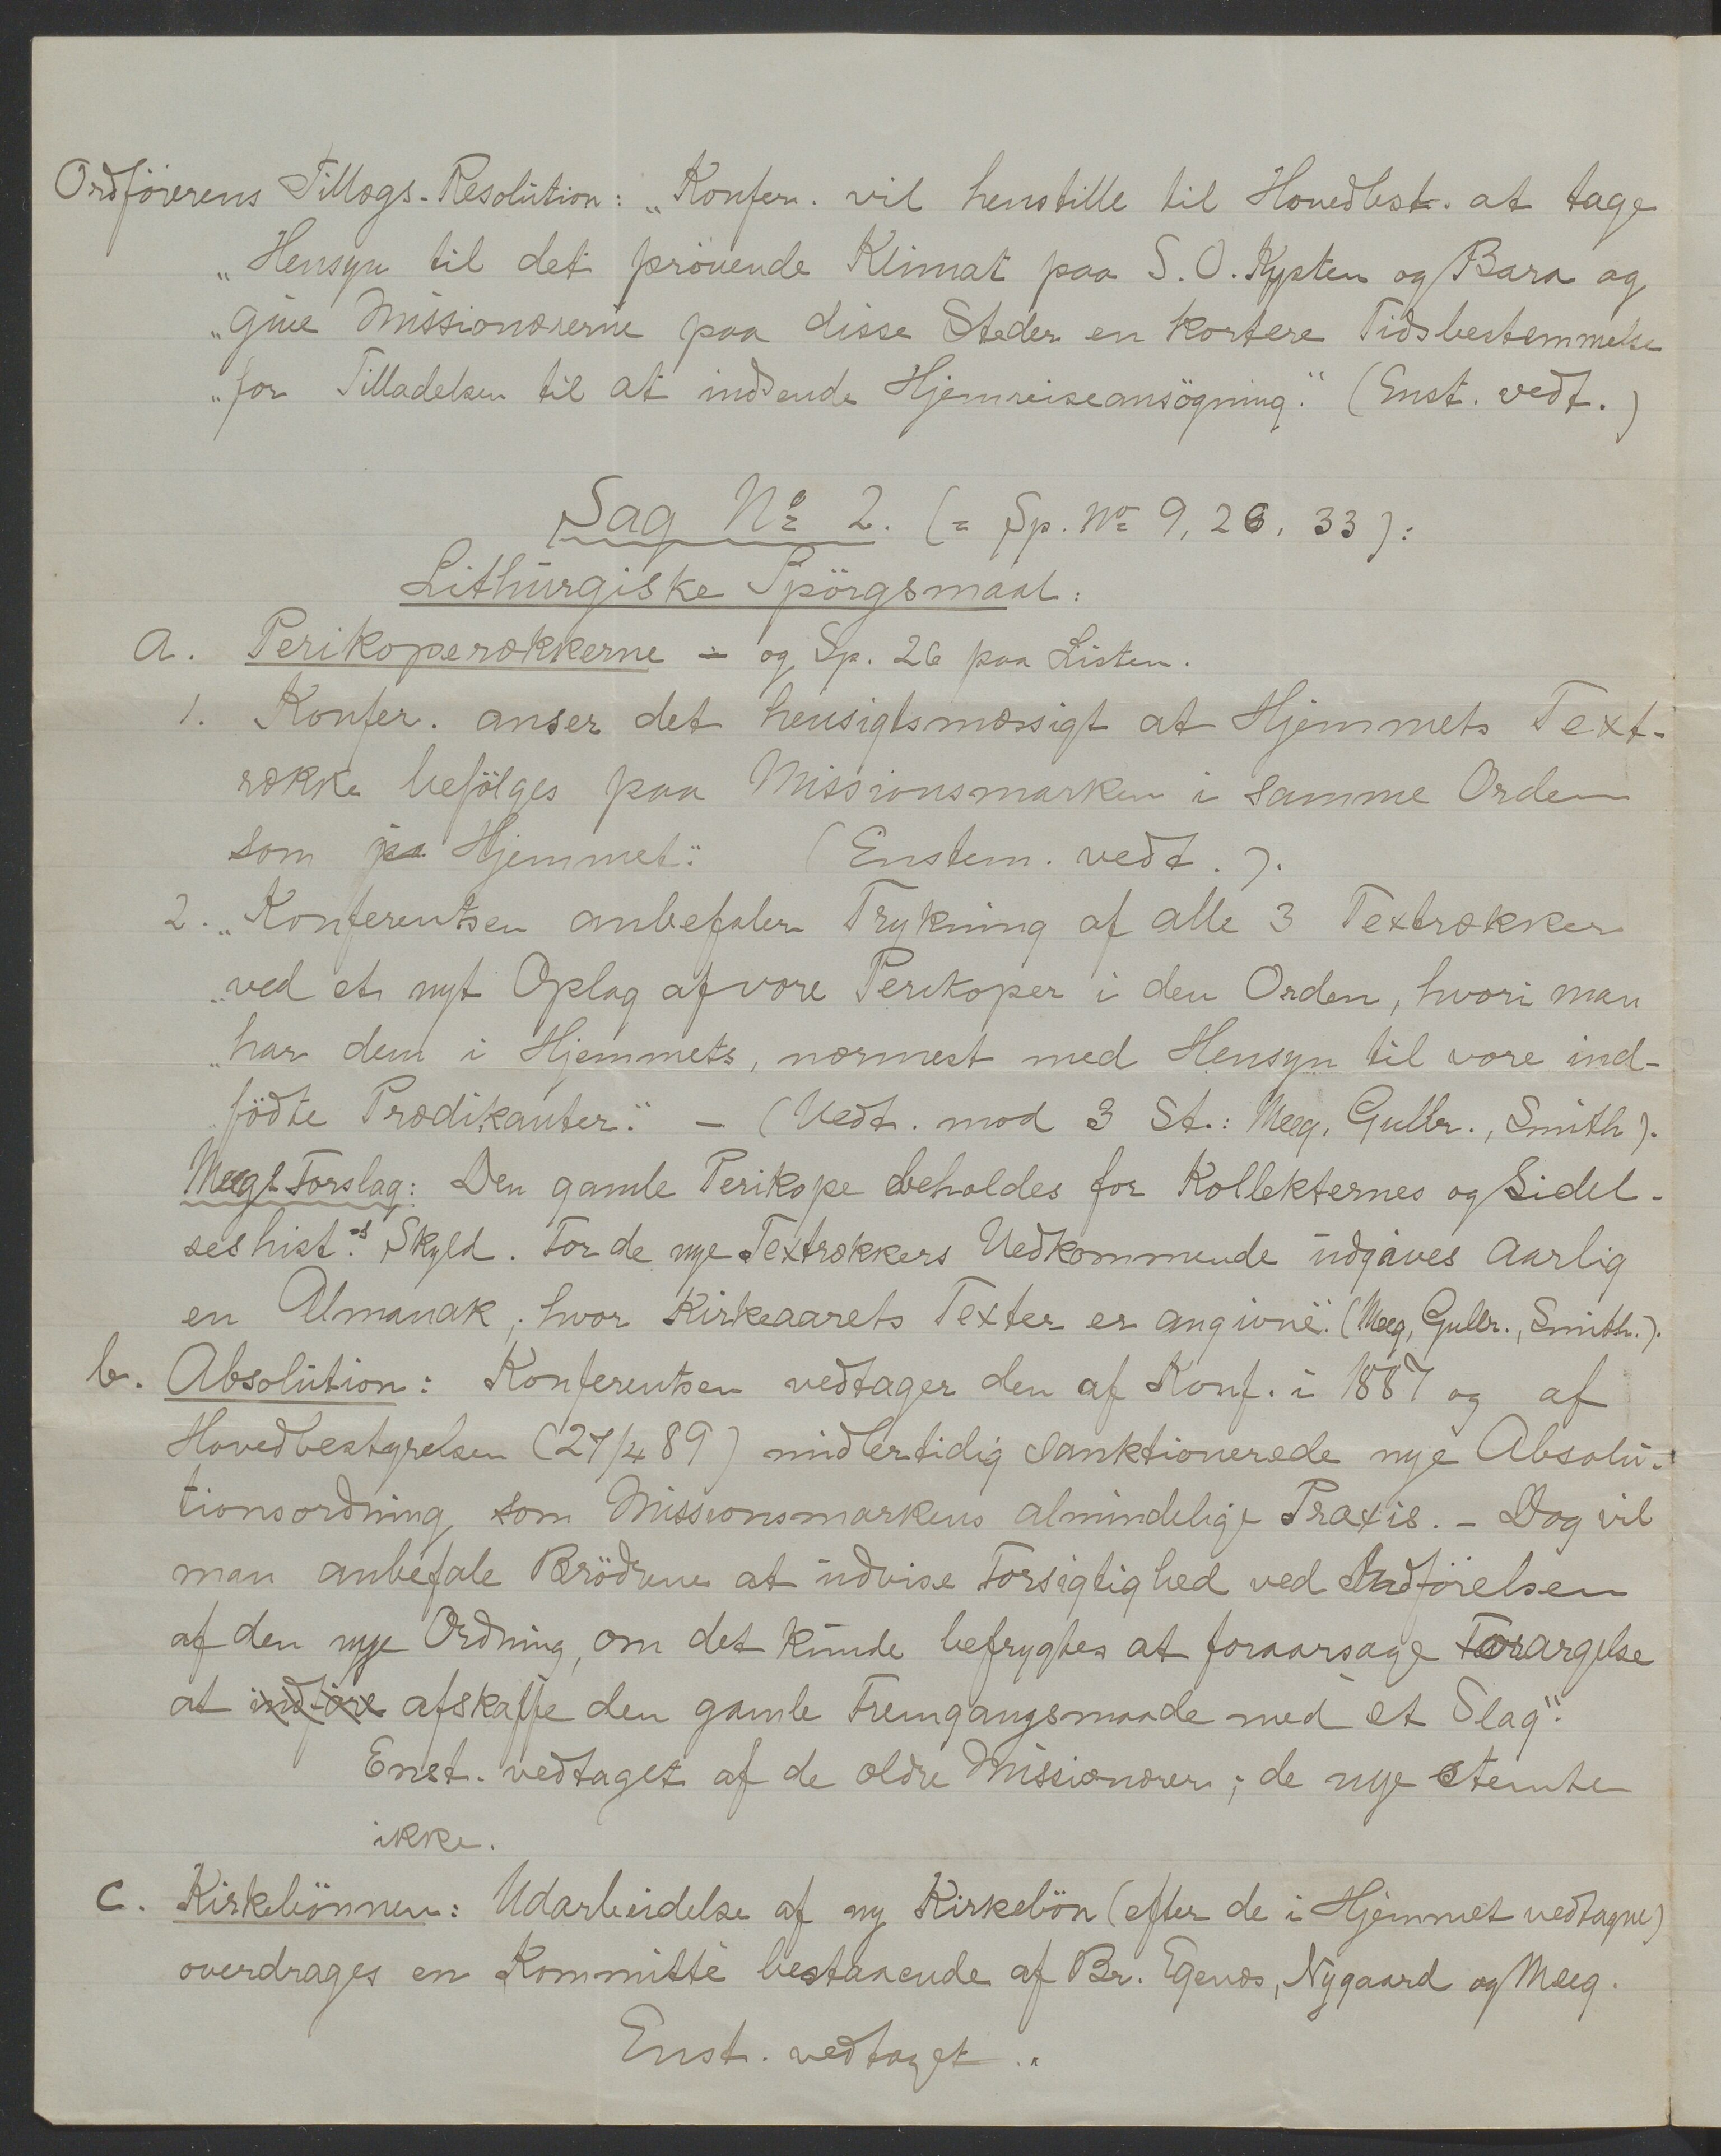 Ordförerens Tillægs-Resolution: „Konfer. vil henstille til Hovedbest. at tage
„Hensyn til det prövende Klimat paa S.O. Kysten og Bara og
„give Missionærerne paa disse Steder en kortere Tidsbestemmelse
„for Tilladelsen til at indsende Hjemreiseansögning." (Enst. vedt.)
Sag No 2. (= Sp. No 9, 26, 33):
Lithurgiske Spörgsmaal:
a. Perikoperækkerne - og Sp. 26 paa Listen.
1. Konfer. anser det hensigtsmæssigt at Hjemmets Text-
række befölges paa Missionsmarken i samme Orden
som i Hjemmet." (Enstem. vedt.).
2. „Konferentsen anbefaler Trykning af alle 3 Textrækker
„ved et nyt Oplag af vore Perikoper i den Orden, hvori man
„har dem i Hjemmets, nærmest med Hensyn til vore ind-
„födte Prædikanter." - (Vedt. mod 3 St.: Meeg, Gullr., Smith).
Meegs Forslag: Den gamle Perikope beholdes for Kollekternes og Lidel-
seshist.s Skyld. For de nye Textrækkers Vedkommende udgives aarlig
en Almanak, hvor Kirkeaarets Texter er angivne". (Meeg, Gullr., Smith.).
b. Absolution: Konferentsen vedtager den af Konf. i 1887 og af
Hovedbestyrelsen (27/4 89) midlertidig sanktionerede nye Absolu-
tionsordning som Missionsmarkens almindelige Praxis. - Dog vil
man anbefale Brödrene at udvise Forsigtighed ved Indförelsen
af den nye Ordning, om det kunde befrygtes at foraarsage Forargelse
at indföre afskaffe den gamle Fremgangsmaade med et Slag".
Enst. vedtaget af de ældre Missionærer; de nye stemte
ikke.
c. Kirkebönnen: Udarbeidelse af ny Kirkebön (efter de i Hjemmet vedtagne)
overdrages en Kommitté bestaaende af Br. Egenæs, Nygaard og Meeg.
Enst. vedtaget.